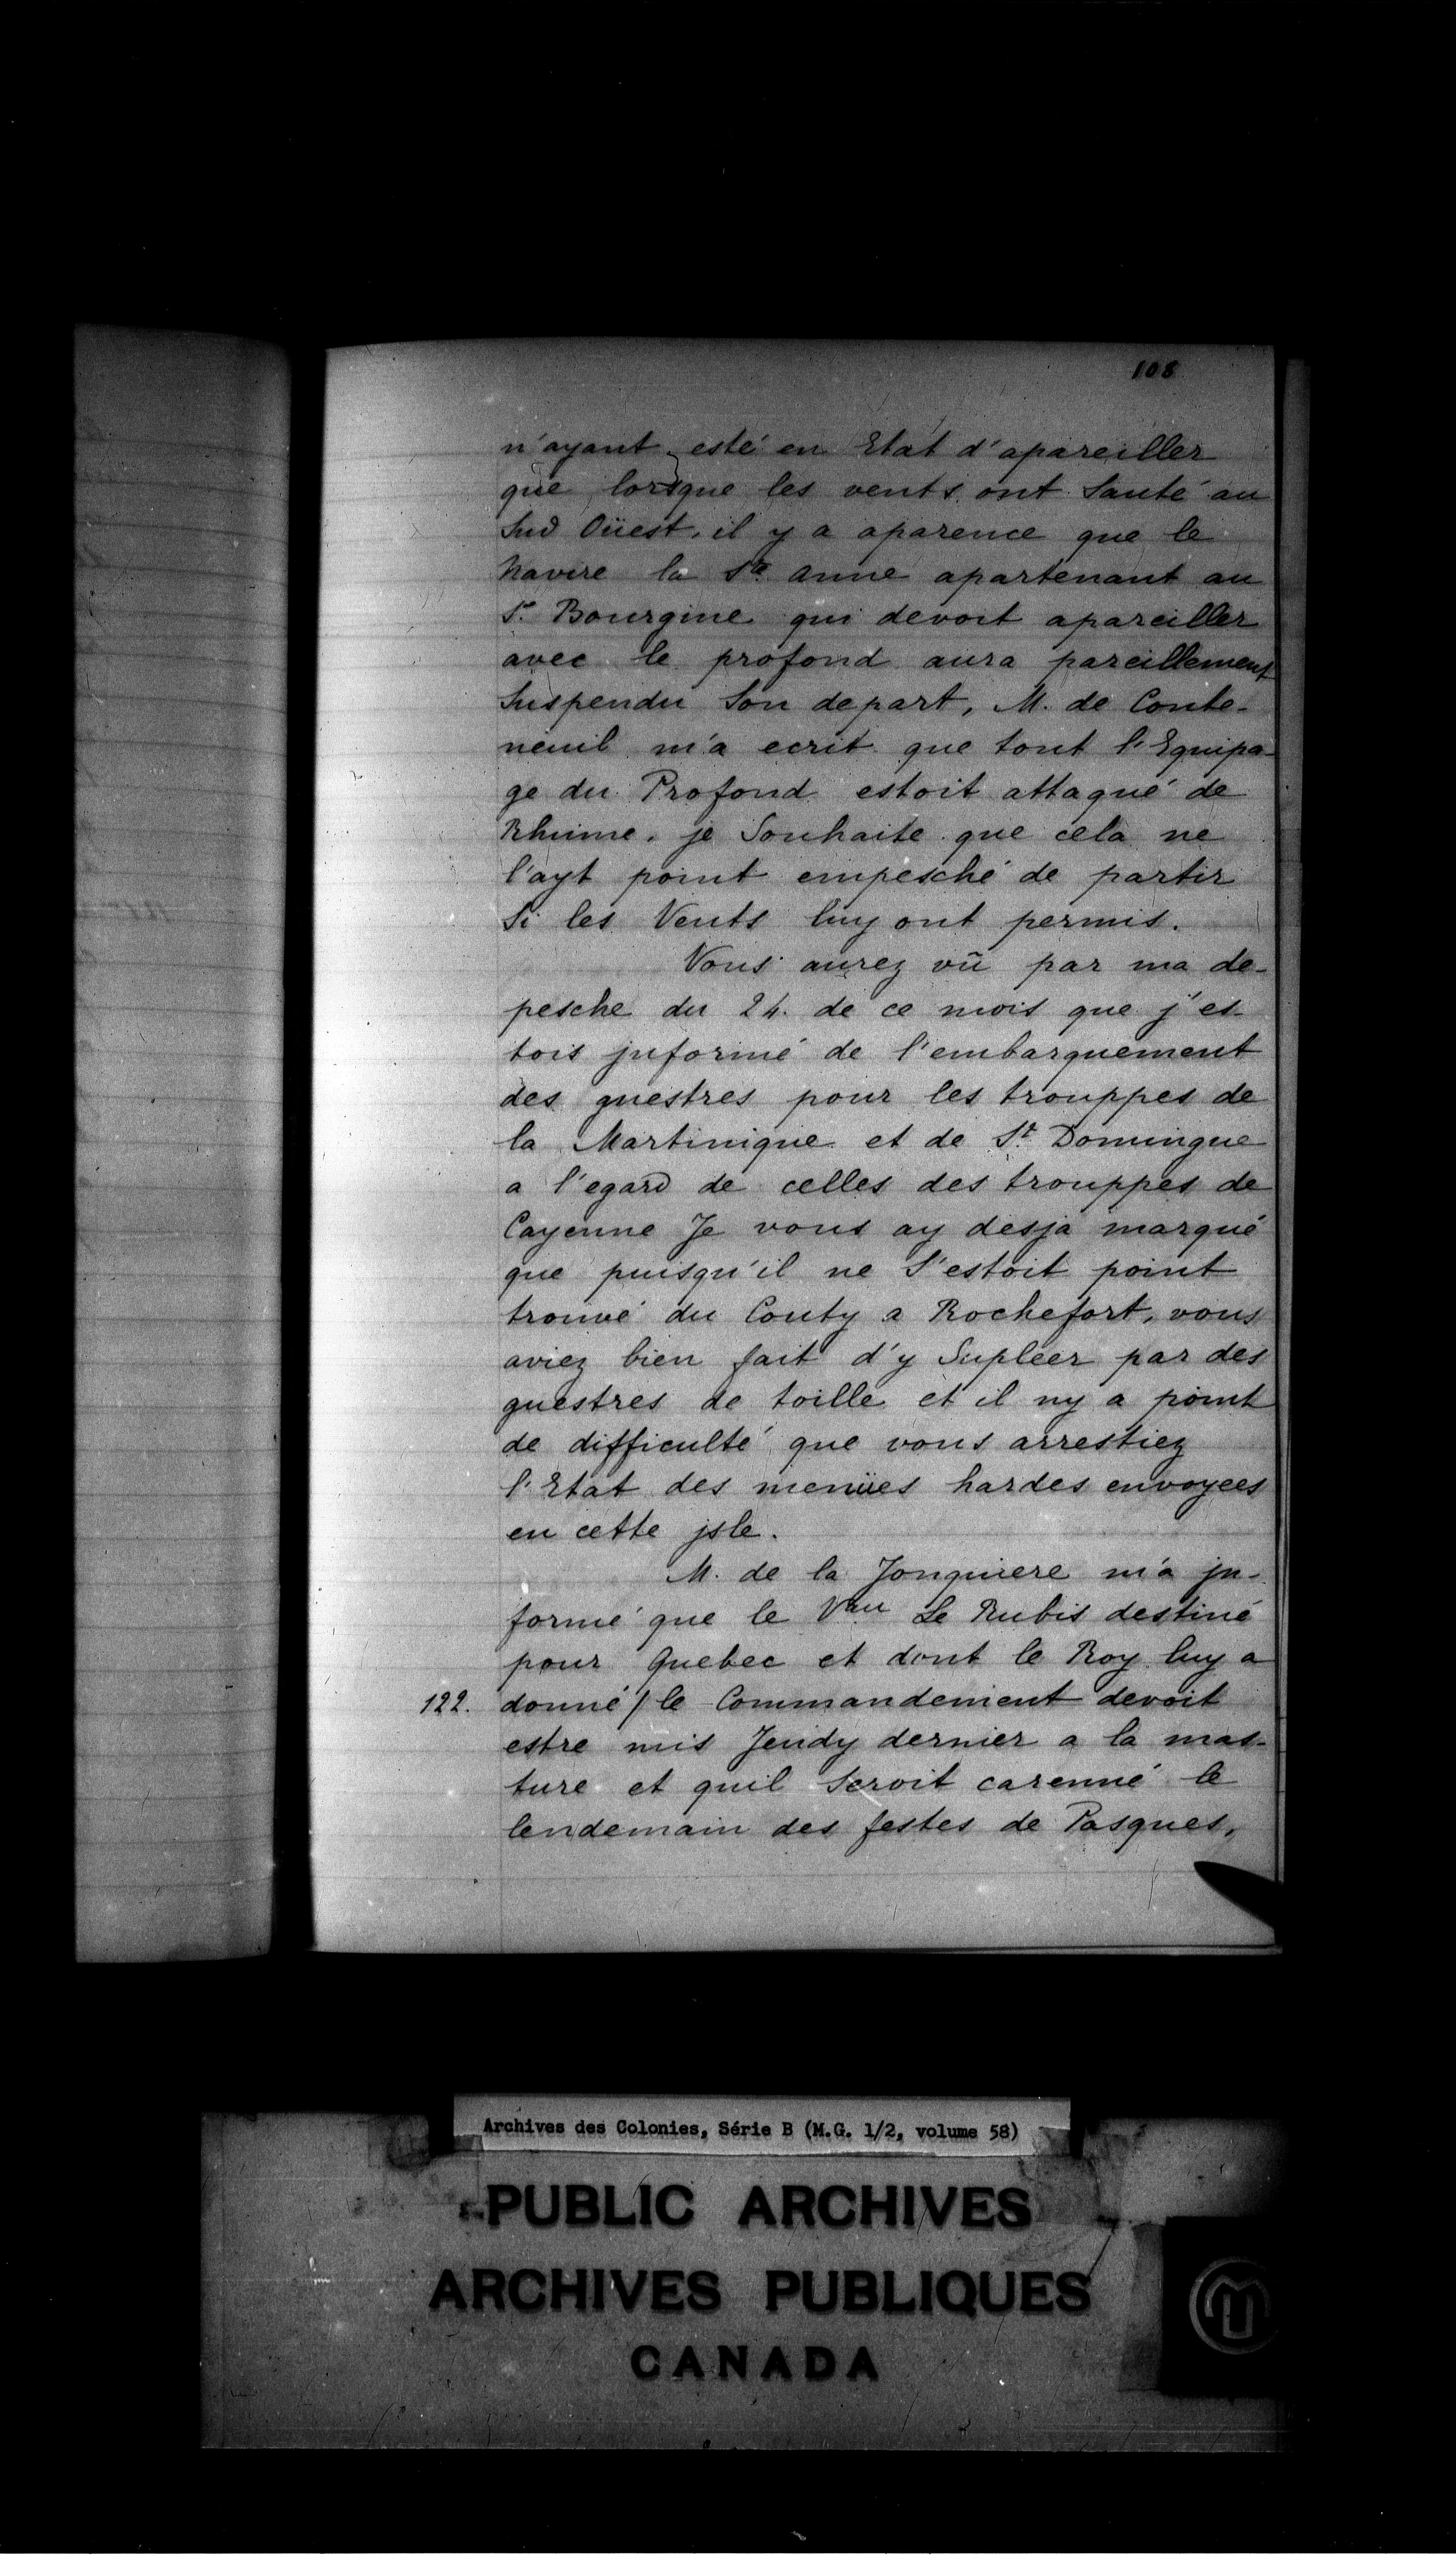 108
n'ayant esté en Etat d'apareiller
que lorsque les vents ont Sauté au
Sud Oüest, il y a aparence que le
Navire la Ste Anne apartenant au
Sr. Bourgine qui devoit apareiller
avec le profond aura pareillement
Suspendu Son depart, M. de Conte-
neuil m'a ecrit que tout l'Equipa-
ge du Profond estoit attaqué de
Rhume, je Souhaite que cela ne
l'ayt point empesché de partir
Si les Vents luy ont permis.
Vous aurez vû par ma de-
pesche du 24. de ce mois que j'es-
tois jnformé de l'embarquement
des guestres pour les trouppes de
la Martinique et de St Domingue
a l'egard de celles des trouppes de
Cayenne Je vous ay desja marqué
que puisqu'il ne S'estoit point
trouvé du Couty a Rochefort, vous
aviez bien fait d'y Supléer par des
guestres de toille et il ny a point
de difficulté que vous arrestiez
l'Etat des menües hardes envoyees
en cette jsle.
M. de la Jonquiere m'a jn-
formé que le Vau Le Rubis destiné
pour Quebec et dont le Roy luy a
122. donné / le Commandement devoit
estre mis Jeudy dernier a la mas-
ture et quil Seroit carenné le
lendemain des festes de Pasques,
Archives des Colonies, Série B (M.G. 1/2, volume 58)
PUBLIC ARCHIVES
ARCHIVES PUBLIQUES
CANADA